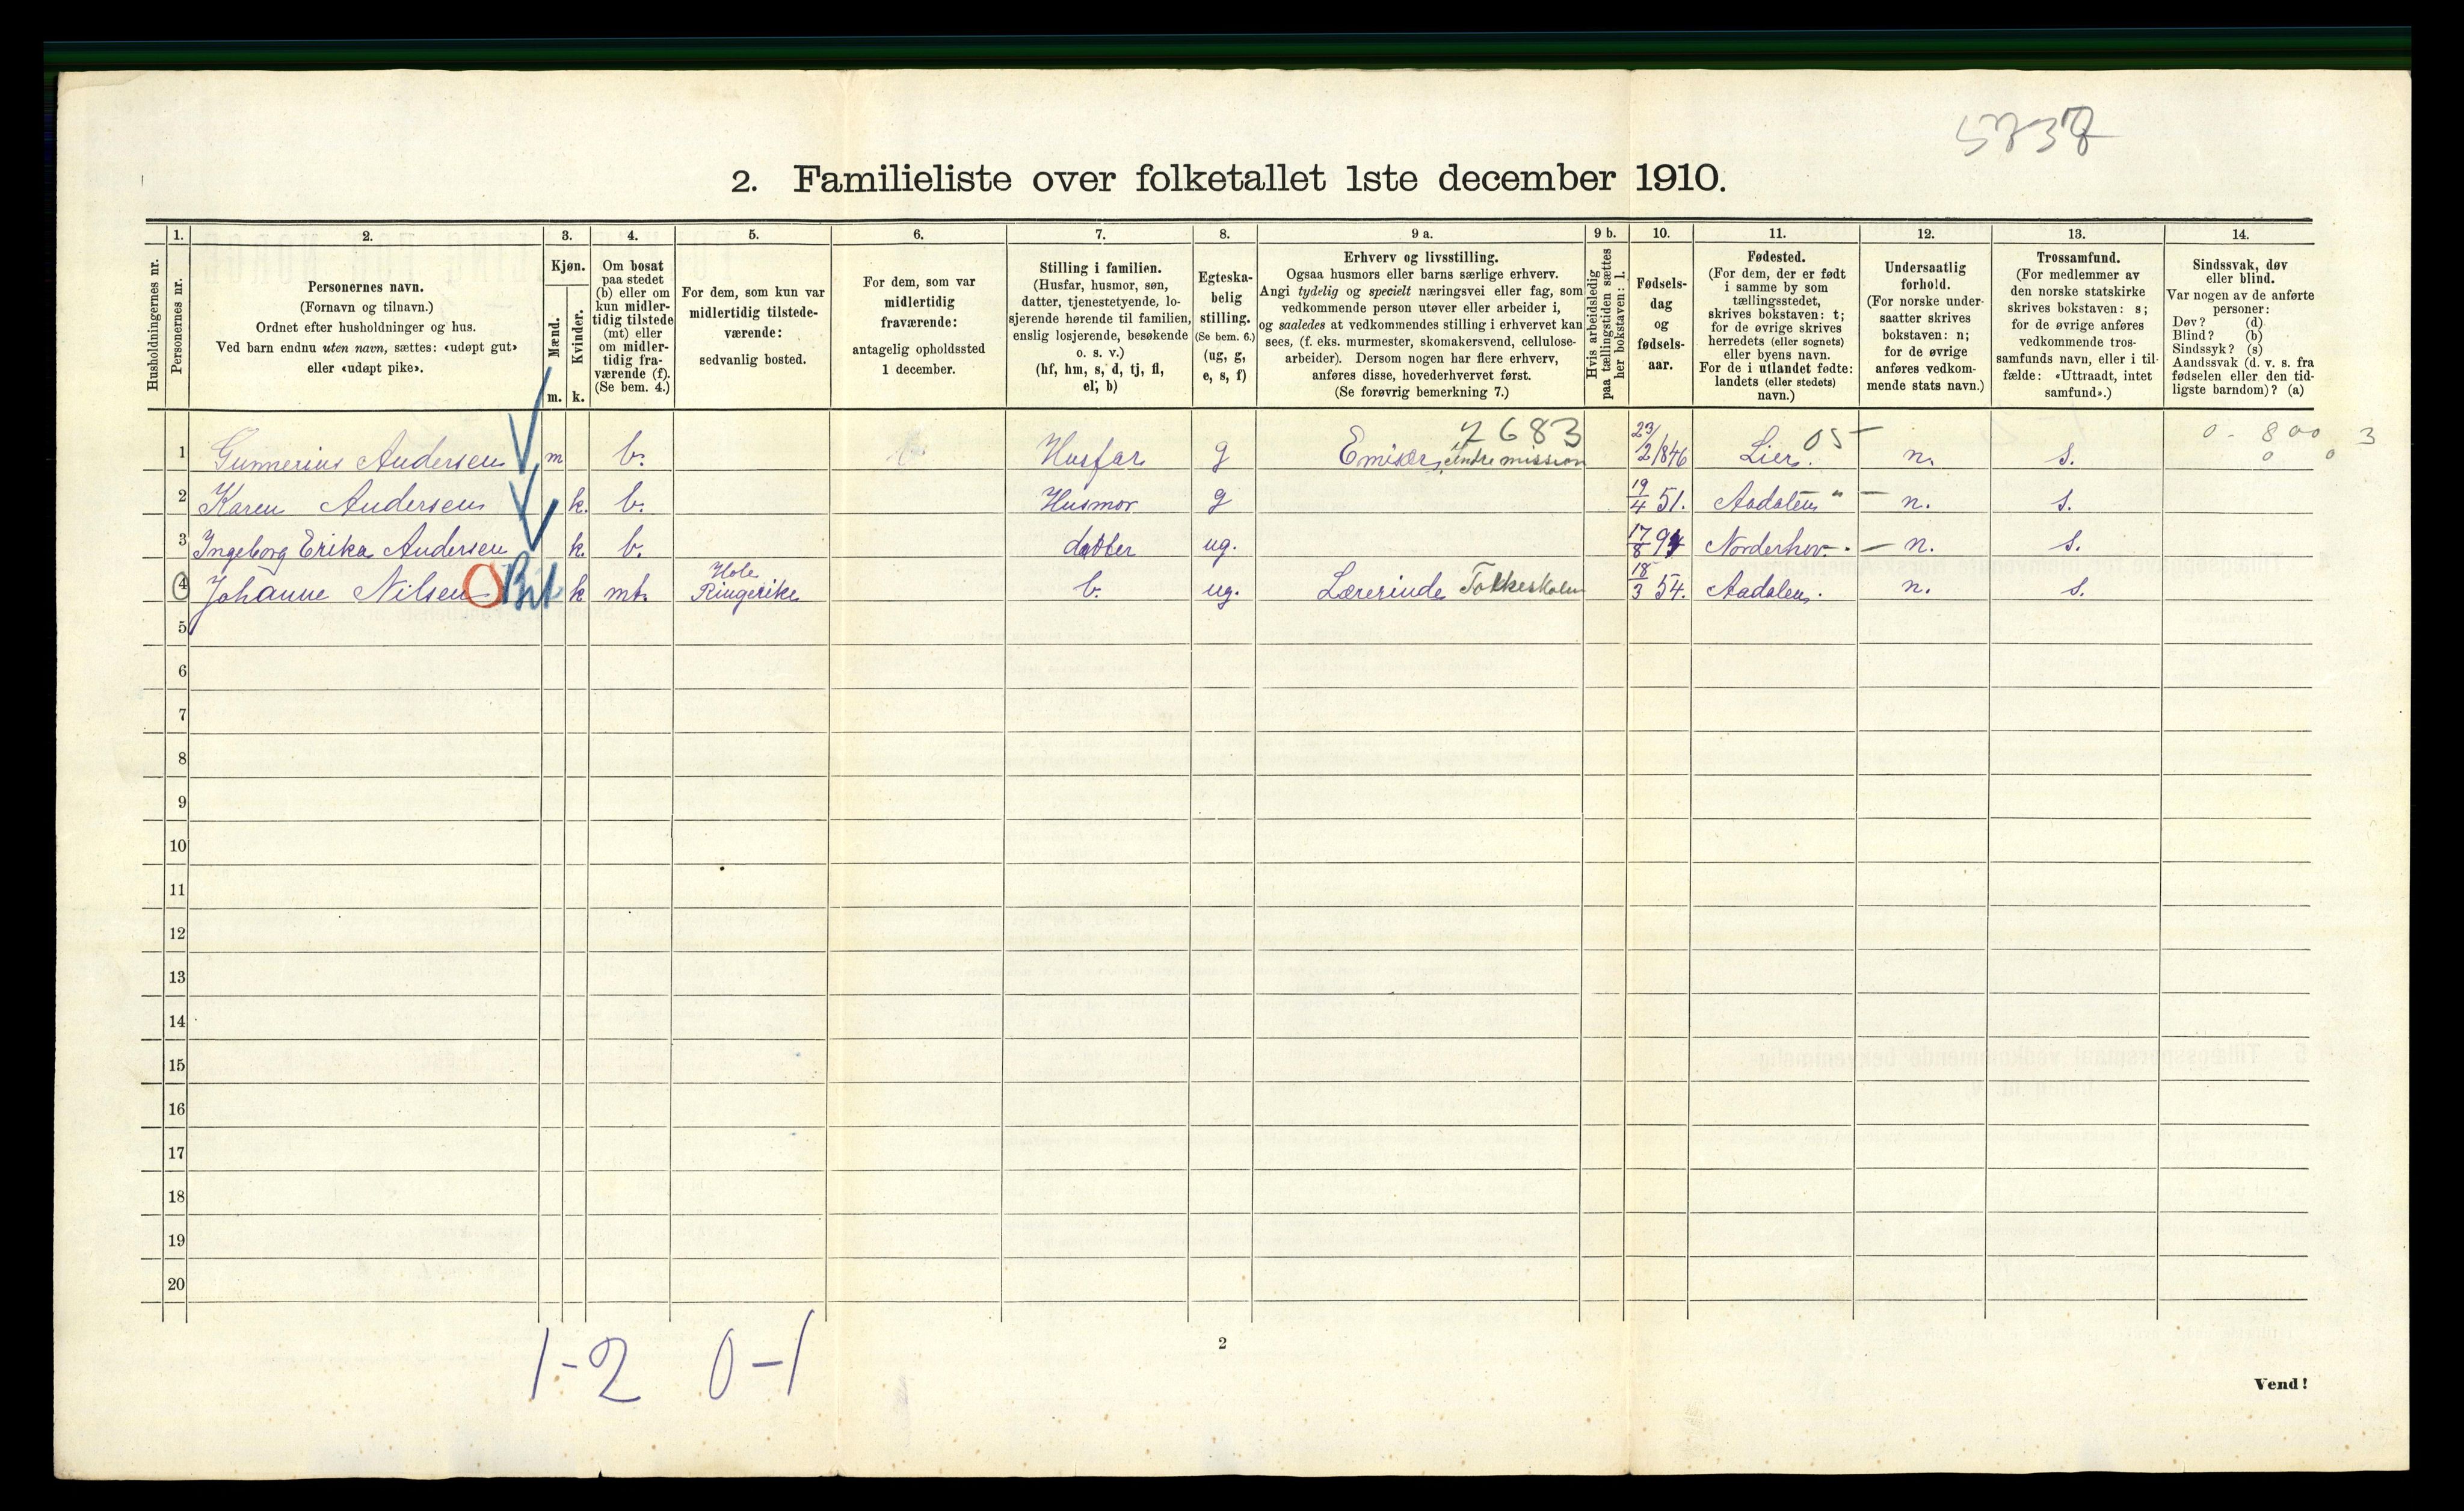 5737
2. Familieliste over folketallet 1ste december 1910.
1. 2. 3. 4. 5. 6. 7. 8. 9 a. 9 b. 10. 11. 12. 13. 14.
Husholdningernes nr.
Personernes nr.
Personernes navn.
(Fornavn og tilnavn.)
Ordnet efter husholdninger og hus.
Ved barn endnu uten navn, sættes: «udøpt gut»
eller «udøpt pike».
Kjøn.
Mænd.
Kvinder.
m. k.
Om bosat
paa stedet
(b) eller om
kun midler-
tidig tilstede
(mt) eller
om midler-
tidig fra-
værende (f).
(Se bem. 4.)
For dem, som kun var
midlertidig tilstede-
værende:
sedvanlig bosted.
For dem, som var
midlertidig
fraværende:
antagelig opholdssted
1 december.
Stilling i familien.
(Husfar, husmor, søn,
datter, tjenestetyende, lo-
sjerende hørende til familien,
enslig losjerende, besøkende
o. s. v.)
(hf, hm, s, d, tj, fl,
el, b)
Egteska-
belig
stilling.
(Se bem. 6.)
(ug, g,
e, s, f)
Erhverv og livsstilling.
Ogsaa husmors eller barns særlige erhverv.
Angi tydelig og specielt næringsvei eller fag, som
vedkommende person utøver eller arbeider i,
og saaledes at vedkommendes stilling i erhvervet kan
sees, (f. eks. murmester, skomakersvend, cellulose-
arbeider). Dersom nogen har flere erhverv,
anføres disse, hovederhvervet først.
(Se forøvrig bemerkning 7.)
Hvis arbeidsledig
paa tællingstiden sættes
her bokstaven: l.
Fødsels-
dag
og
fødsels-
aar.
Fødested.
(For dem, der er født
i samme by som
tællingsstedet,
skrives bokstaven: t;
for de øvrige skrives
herredets (eller sognets)
eller byens navn.
For de i utlandet fødte:
landets (eller stedets)
navn.)
Undersaatlig
forhold.
(For norske under-
saatter skrives
bokstaven: n;
for de øvrige
anføres vedkom-
mende stats navn.)
Trossamfund.
(For medlemmer av
den norske statskirke
skrives bokstaven: s;
for de øvrige anføres
vedkommende tros-
samfunds navn, eller i til-
fælde: «Uttraadt, intet
samfund».)
Sindssvak, døv
eller blind.
Var nogen av de anførte
personer:
Døv? (d)
Blind? (b)
Sindssyk? (s)
Aandssvak (d. v. s. fra
fødselen eller den tid-
ligste barndom)? (a)
7683 05 0 - 800 3
1 Gunnerius Andersen m b. Husfar g Emisær, indre mission 23/2 1846 Lier. n. s. 0 0
2 Karen Andersen k. b. Husmor g 19/4 51. Aadalen " n. s.
3 Ingeborg Erika Andersen k. b. datter ug. 17/8 94 Norderhov. n. s.
4 Johanne Nilsen k mt. Hole Ringerike b. ug. Lærerinde Folkeskolen 18/3 54. Aadalen. n. s.
5
6
7
8
9
10
11
12
13
14
15
16
17
18
19
20
1-2 0-1
2
Vend!